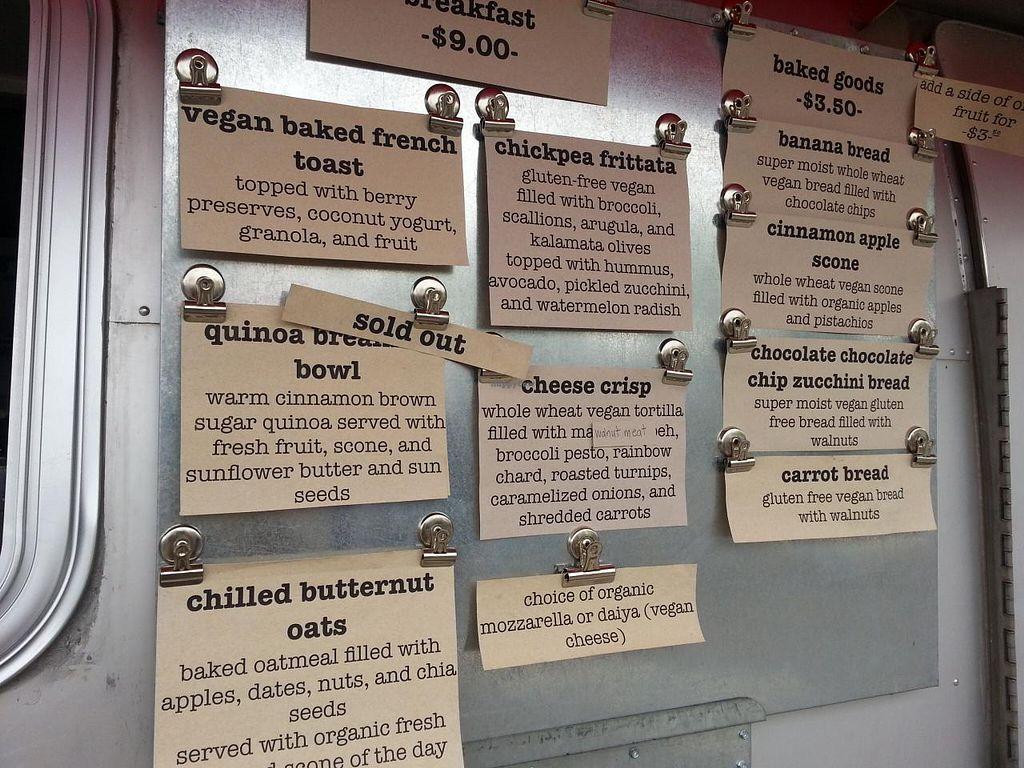 breakfast
-$9.00-
vegan baked french
toast
topped with berry
preserves, coconut yogurt,
granola, and fruit
sold out
quinoa
bowl
warm cinnamon brown
sugar quinoa served with
fresh fruit, scone, and
sunflower butter and sun
seeds
chilled butternut
oats
baked oatmeal filled with
apples, dates, nuts, and chia
seeds
served with organic fresh
scone of the day
chickpea frittata
gluten-free vegan
filled with broccoli,
scallions, arugula, and
kalamata olives
topped with hummus,
avocado, pickled zucchini,
and watermelon radish
cheese crisp
whole wheat vegan tortilla
filled with walnut meat
broccoli pesto, rainbow
chard, roasted turnips,
caramelized onions, and
shredded carrots
choice of organic
mozzarella or daiya (vegan
cheese)
baked goods
-$3.50-
banana bread
super moist whole wheat
vegan bread filled with
chocolate chips
cinnamon apple
scone
whole wheat vegan scone
filled with organic apples
and pistachios
chocolate chocolate
chip zucchini bread
super moist vegan gluten
free bread filled with
walnuts
carrot bread
gluten free vegan bread
with walnuts
add a side of
fruit for
-$3-